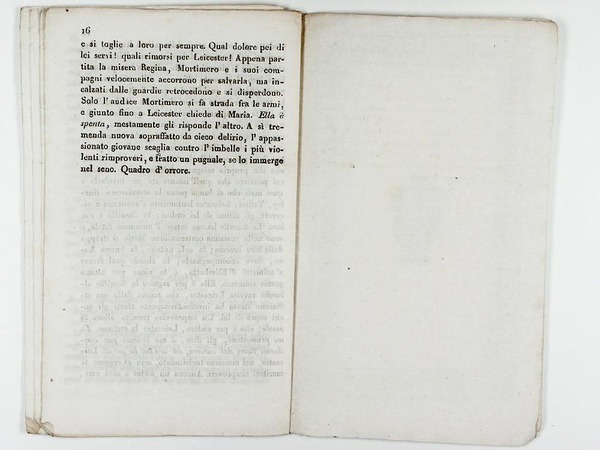 16
e si toglie a loro per sempre. Qual dolore pei di
lei servi! quali rimorsi per Leicester! Appena par-
tita la misera Regina, Mortimero e i suoi com-
pagni velocemente accorrono per salvarla, ma in-
calzati dalle guardie retrocedono e si disperdono.
Solo l'audice Mortimero si fa strada fra le armi,
e giunto fino a Leicester chiede di Maria. Ella è
spenta, mestamente gli risponde l'altro. A sì tre-
menda nuova sopraffatto da cieco delirio, l'appas-
sionato giovane scaglia contro l'imbelle i più vio-
lenti rimproveri, e tratto un pugnale, se lo immerge
nel seno. Quadro d'orrore.